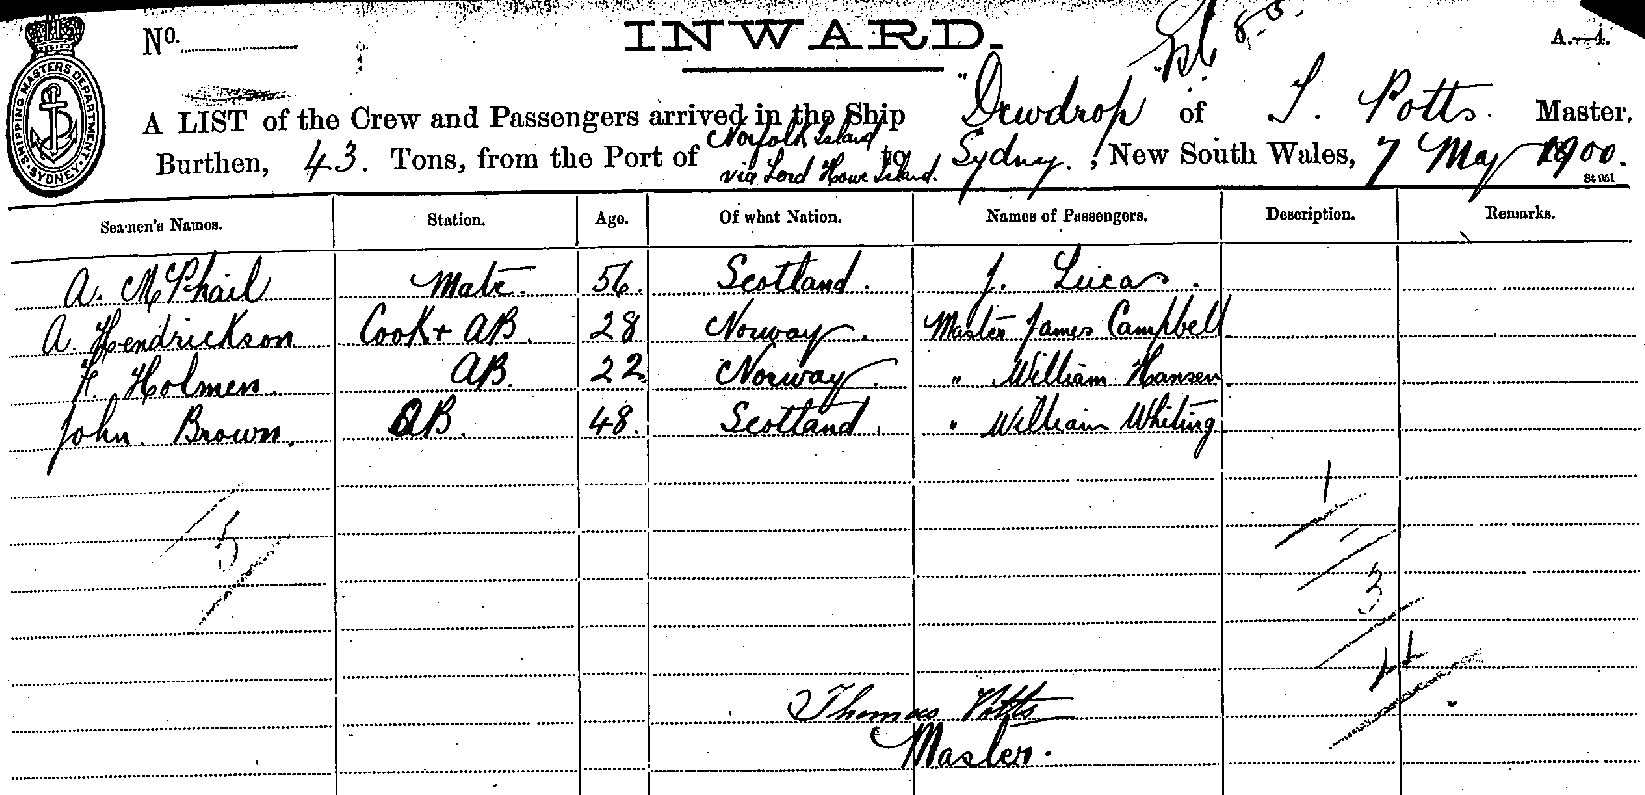 No. INWARD. A.—4.
SHIPPING MASTERS DEPARTMENT. SYDNEY.
A LIST of the Crew and Passengers arrived in the Ship "Dewdrop" of T. Potts. Master,
Norfolk Island
Burthen, 43. Tons, from the Port of via Lord Howe Island. to Sydney. , New South Wales, 7 May 1900.
Seamen's Names. Station. Age. Of what Nation. Names of Passengers. Description. Remarks.
A. McPhail Mate. 56. Scotland. J. Lucas.
A. Hendrickson Cook + AB. 28 Norway. Master James Campbell
K. Holmen. AB. 22 Norway. " William Hansen
John. Brown. AB. 48. Scotland. " William Whiting
5
1
3
4
Thomas Potts
Master.